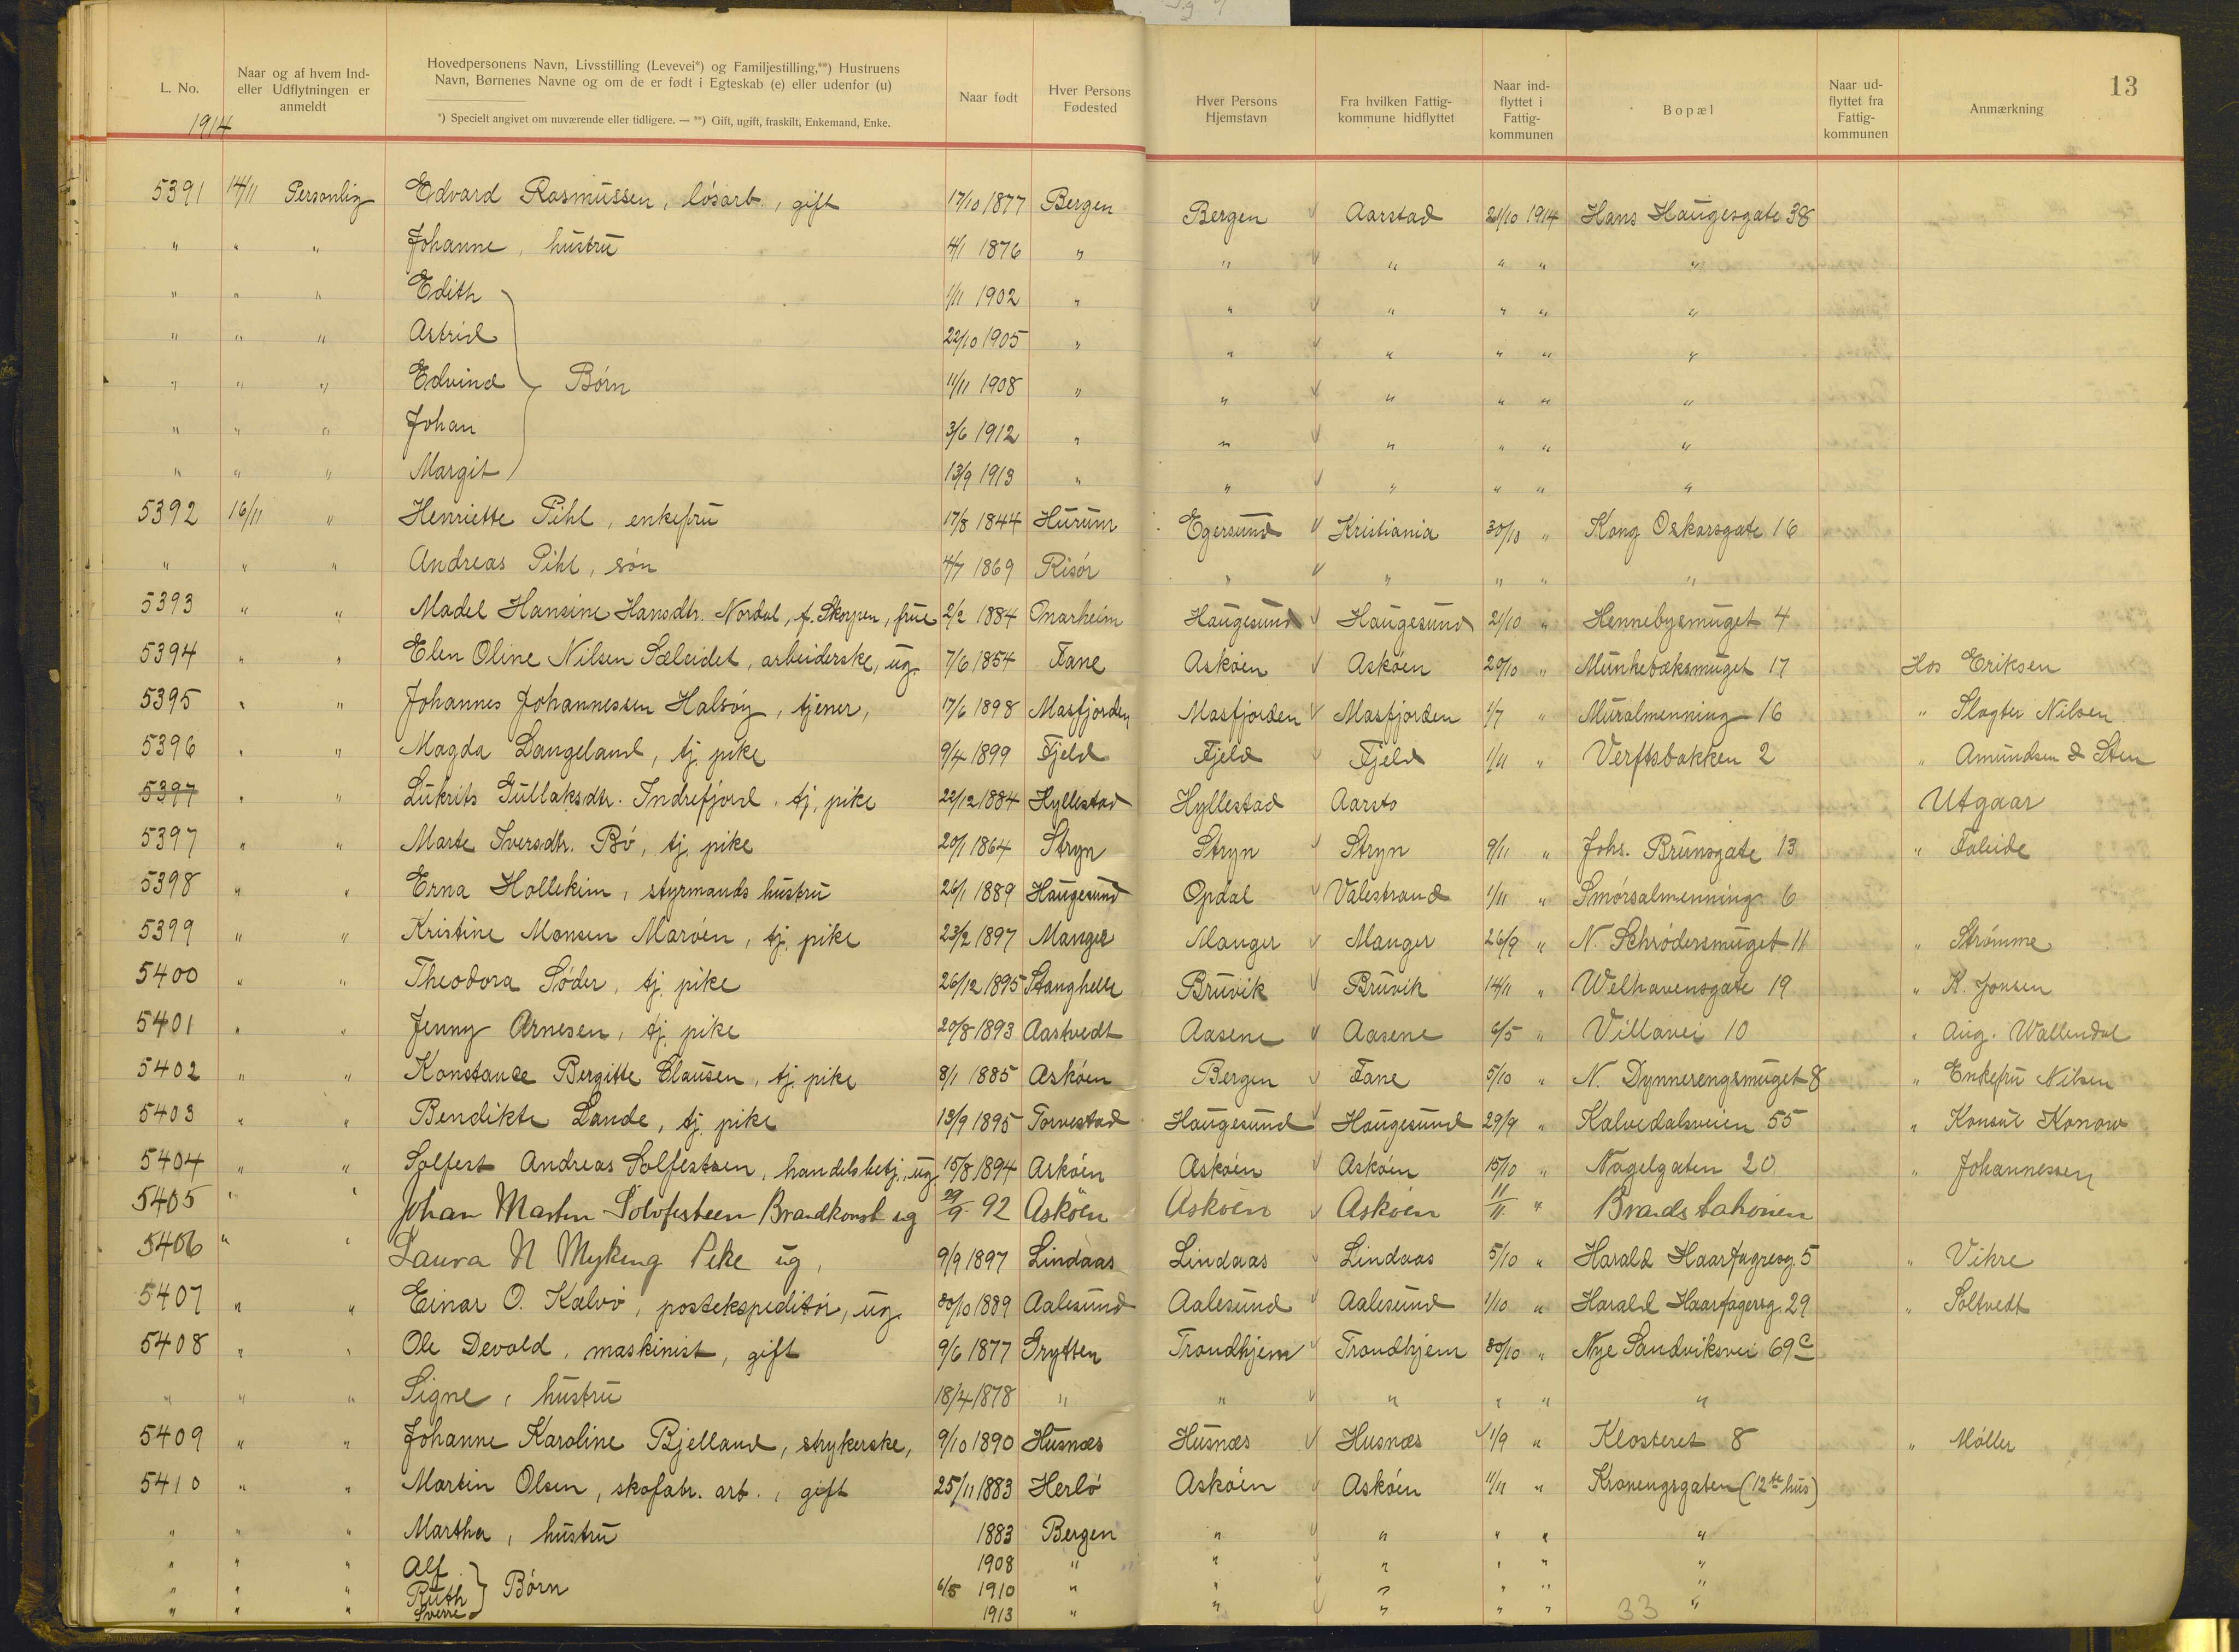 13
L. No.
1914
Naar og af hvem Ind-
eller Udflytningen er
anmeldt
Hovedpersonens Navn, Livsstilling (Levevei*) og Familjestilling,**) Hustruens
Navn, Børnenes Navne og om de er født i Egteskab (e) eller udenfor (u)
*) Specielt angivet om nuværende eller tidligere. — **) Gift, ugift, fraskilt, Enkemand, Enke.
Naar født
Hver Persons
Fødested
Hver Persons
Hjemstavn
Fra hvilken Fattig-
kommune hidflyttet
Naar ind-
flyttet i
Fattig-
kommunen
Bopæl
Naar ud-
flyttet fra
Fattig-
kommunen
Anmærkning
5391 14/11 Personlig Edvard Rasmussen, løsarb., gift 17/10 1877 Bergen Bergen Aarstad 21/10 1914 Hans Haugesgate 38
" " " Johanne, hustru 4/1 1876 " " " " " "
" " " Edith 1/11 1902 " " " " " "
" " " Astrid 22/10 1905 " " " " " "
" " " Edvind Børn 11/11 1908 " " " " " "
" " " Johan 3/6 1912 " " " " " "
" " " Margit 13/9 1913 " " " " " "
5392 16/11 " Henriette Pihl, enkefru 17/8 1844 Hurum Egersund Kristiania 30/10 " Kong Oskarsgate 16
" " " Andreas Pihl, søn 4/7 1869 Risør " " " " "
5393 " " Madel Hansine Hansdtr. Nordal, f. Skorpen, frue 2/2 1884 Onarheim Haugesund Haugesund 21/10 " Hennebysmuget 4
5394 " " Elen Oline Nilsen Sæleidet, arbeiderske, ug. 7/6 1854 Fane Askøen Askøen 20/10 " Munkebæksmuget 17 Hos Eriksen
5395 " " Johannes Johannessen Halsøy, tjener, 17/6 1898 Masfjorden Masfjorden Masfjorden 1/7 " Muralmenning 16 " Slagter Nilsen
5396 " " Magda Langeland, tj. pike 9/4 1899 Fjeld Fjeld Fjeld 1/11 " Verftsbakken 2 " Amundsen & Sten
5397 " " Lukrits Gullaksdtr. Indrefjord, tj. pike 22/12 1884 Hyllestad Hyllestad Aarsto Utgaar
5397 " " Marte Iversdtr. Bø, tj. pike 20/1 1864 Stryn Stryn Stryn 9/11 " Johs. Brunsgate 13 " Faleide
5398 " " Erna Hollekim, styrmands hustru 26/1 1889 Haugesund Opdal Valestrand 1/11 " Smørsalmenning 6
5399 " " Kristine Monsen Marøen, tj. pike 23/2 1897 Manger Manger Manger 26/9 " N. Schrødersmuget 11 " Strømme
5400 " " Theodora Søder, tj. pike 26/12 1895 Stanghelle Bruvik Bruvik 14/11 " Welhavensgate 19 " K. Jonsen
5401 " " Jenny Arnesen, tj. pike 20/8 1893 Aastvedt Aasene Aasene 6/5 " Villavei 10 " Aug. Wallendal
5402 " " Konstance Bergitte Clausen, tj. pike 8/1 1885 Askøen Bergen Fane 5/10 " N. Dynnerengsmuget 8 " Enkefru Nilsen
5403 " " Bendikte Lande, tj. pike 13/9 1895 Torvestad Haugesund Haugesund 29/9 " Kalvedalsveien 55 " Konsul Konow
5404 " " Solfest Andreas Solfestsen, handelsbetj., ug. 15/8 1894 Askøen Askøen Askøen 15/10 " Nagelgaten 20 " Johannessen
5405 " " Johan Martin Solvfesteen Brandkonst ug 29/9 92 Askøen Askøen Askøen 11/11 " Brandstationen
5406 " " Laura N Myking Pike ug, 9/9 1897 Lindaas Lindaas Lindaas 5/10 " Harald Haarfagresg. 5 " Vikre
5407 " " Einar O. Kalvø, postekspeditør, ug. 30/10 1889 Aalesund Aalesund Aalesund 1/10 " Harald Haarfagersg. 29 " Soltvedt
5408 " " Ole Devold, maskinist, gift 9/6 1877 Grytten Trondhjem Trondhjem 30/10 " Nye Sandviksvei 69 c
" " " Signe, hustru 18/4 1878 " " " " " "
5409 " " Johanne Karoline Bjelland, strykerske, 9/10 1890 Husnæs Husnæs Husnæs 1/9 " Klosteret 8 " Møller
5410 " " Martin Olsen, skofabr. arb., gift 25/11 1883 Herlø Askøen Askøen 11/11 " Kronengsgaten (12te hus)
" " " Martha, hustru 1883 Bergen " " " " "
" " " Alf 1908 " " " " " "
" " " Ruth Børn 6/5 1910 " " " " " "
" " " Sverre 1913 " " " " " "
33